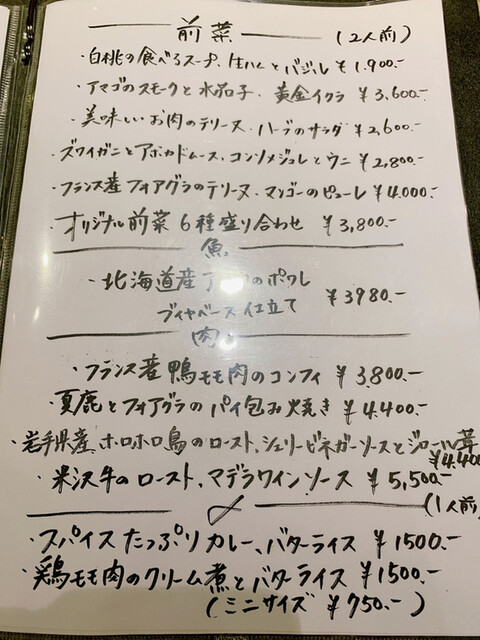 前菜 (2人前)
・白桃の食べるスープ、生ハムとバジル ¥1,900.-
・アマゴのスモークと水茄子、黄金イクラ ¥3,600.-
・美味しいお肉のテリーヌ、ハーブのサラダ ¥2,600.-
・ズワイガニとアボカドムース、コンソメジュレとウニ ¥2,800.-
・フランス産フォアグラのテリーヌ、マンゴーのピューレ ¥4,000.-
・オリジナル前菜6種盛り合わせ ¥3,800.-
魚
・北海道産 のポワレ
ブイヤベース仕立て ¥3980.-
肉
・フランス産鴨モモ肉のコンフィ ¥3,800.-
・夏鹿とフォアグラのパイ包み焼き ¥4,400.-
・岩手県産ホロホロ鳥のロースト、シェリービネガーソースとジロール茸
¥4,400
・米沢牛のロースト、マデラワインソース ¥5,500.-
(1人前)
・スパイスたっぷりカレー、バターライス ¥1500.-
・鶏モモ肉のクリーム煮とバターライス ¥1500.-
(ミニサイズ ¥750.-)